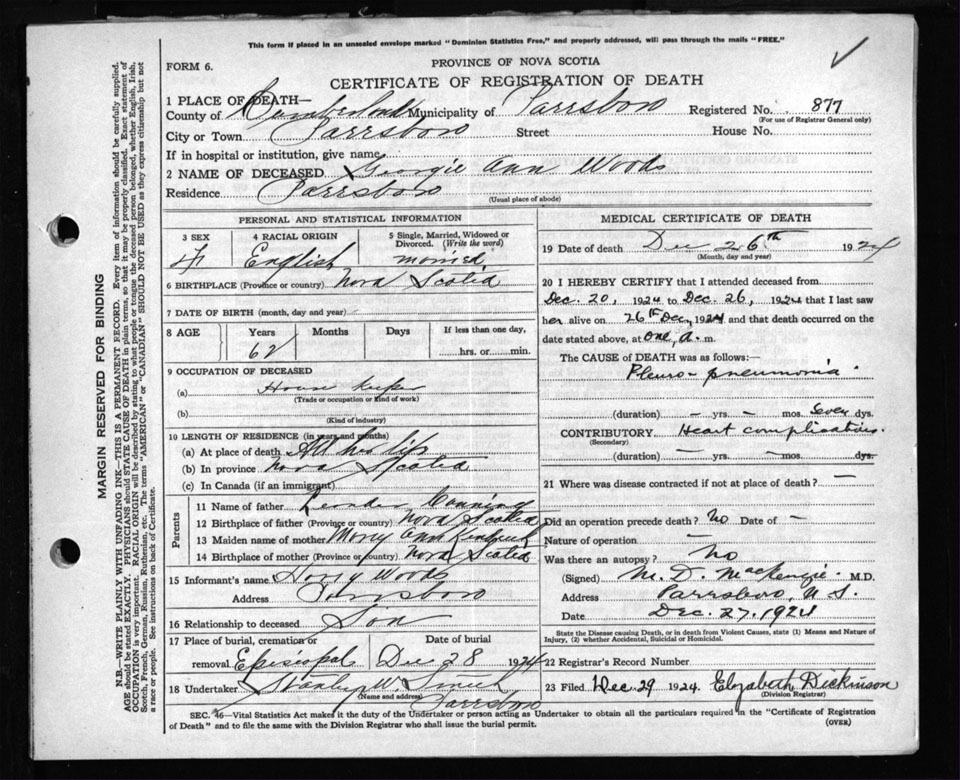 This form if placed in an unsealed envelope marked "Dominion Statistics Free," and properly addressed, will pass through the mails "FREE."
FORM 6.
PROVINCE OF NOVA SCOTIA
CERTIFICATE OF REGISTRATION OF DEATH
1 PLACE OF DEATH—
County of Cumberland Municipality of Parrsboro Registered No. 877
(For use of Registrar General only)
City or Town Parrsboro Street House No.
If in hospital or institution, give name
2 NAME OF DECEASED Georgie Ann Woods
Residence Parrsboro
(Usual place of abode)
PERSONAL AND STATISTICAL INFORMATION
3 SEX 4 RACIAL ORIGIN 5 Single, Married, Widowed or Divorced. (Write the word)
English married
6 BIRTHPLACE (Province or country) Nova Scotia
7 DATE OF BIRTH (month, day and year)
8 AGE Years Months Days If less than one day,
62 hrs. or min.
9 OCCUPATION OF DECEASED
(a) House Keeper
(Trade or occupation or kind of work)
(b)
(Kind of industry)
10 LENGTH OF RESIDENCE (in years and months)
(a) At place of death All her life
(b) In province Nova Scotia
(c) In Canada (if an immigrant)
Parents
11 Name of father Canning
12 Birthplace of father (Province or country) Nova Scotia
13 Maiden name of mother Mary Ann
14 Birthplace of mother (Province or country) Nova Scotia
15 Informant's name Harry Woods
Address Parrsboro
16 Relationship to deceased Son
17 Place of burial, cremation or removal Episcopal Date of burial Dec 28 1924
18 Undertaker Stanley W. Smith
(Name and address)
Parrsboro
MEDICAL CERTIFICATE OF DEATH
19 Date of death Dec 26th 1924
(Month, day and year)
20 I HEREBY CERTIFY that I attended deceased from
Dec. 20, 1924 to Dec. 26, 1924 that I last saw
her alive on 26th Dec, 1924 and that death occurred on
date stated above, at one, a. m.
The CAUSE of DEATH was as follows:—
Pleuro-pneumonia
(duration) — yrs. — mos. seven dys.
CONTRIBUTORY Heart complications.
(Secondary)
(duration) — yrs. — mos. dys.
21 Where was disease contracted if not at place of death? —
Did an operation precede death? No Date of —
Nature of operation —
Was there an autopsy? No
(Signed) M. D. MacKenzie M.D.
Address Parrsboro, N.S.
Date Dec. 27. 1924
State the Disease causing Death, or in death from Violent Causes, state (1) Means and Nature of
Injury, (2) whether Accidental, Suicidal or Homicidal.
22 Registrar's Record Number
23 Filed Dec 29 1924. Elizabeth Dickinson
(Division Registrar)
SEC. 46—Vital Statistics Act makes it the duty of the Undertaker or person acting as Undertaker to obtain all the particulars required in the "Certificate of Registration
of Death" and to file the same with the Division Registrar who shall issue the burial permit.
(OVER)
MARGIN RESERVED FOR BINDING
N.B.—WRITE PLAINLY WITH UNFADING INK—THIS IS A PERMANENT RECORD. Every item of information should be carefully supplied.
AGE should be stated EXACTLY. PHYSICIANS should STATE CAUSE OF DEATH in plain terms, so that it may be properly classified. Exact statement of
OCCUPATION is very important. RACIAL ORIGIN will be described by stating to what people or tongue the deceased person belonged, whether English, Irish,
Scotch, French, German, Russian, Ruthenian, etc. The terms "AMERICAN" or "CANADIAN" SHOULD NOT BE USED as they express citizenship but not
a race or people. See instructions on back of Certificate.